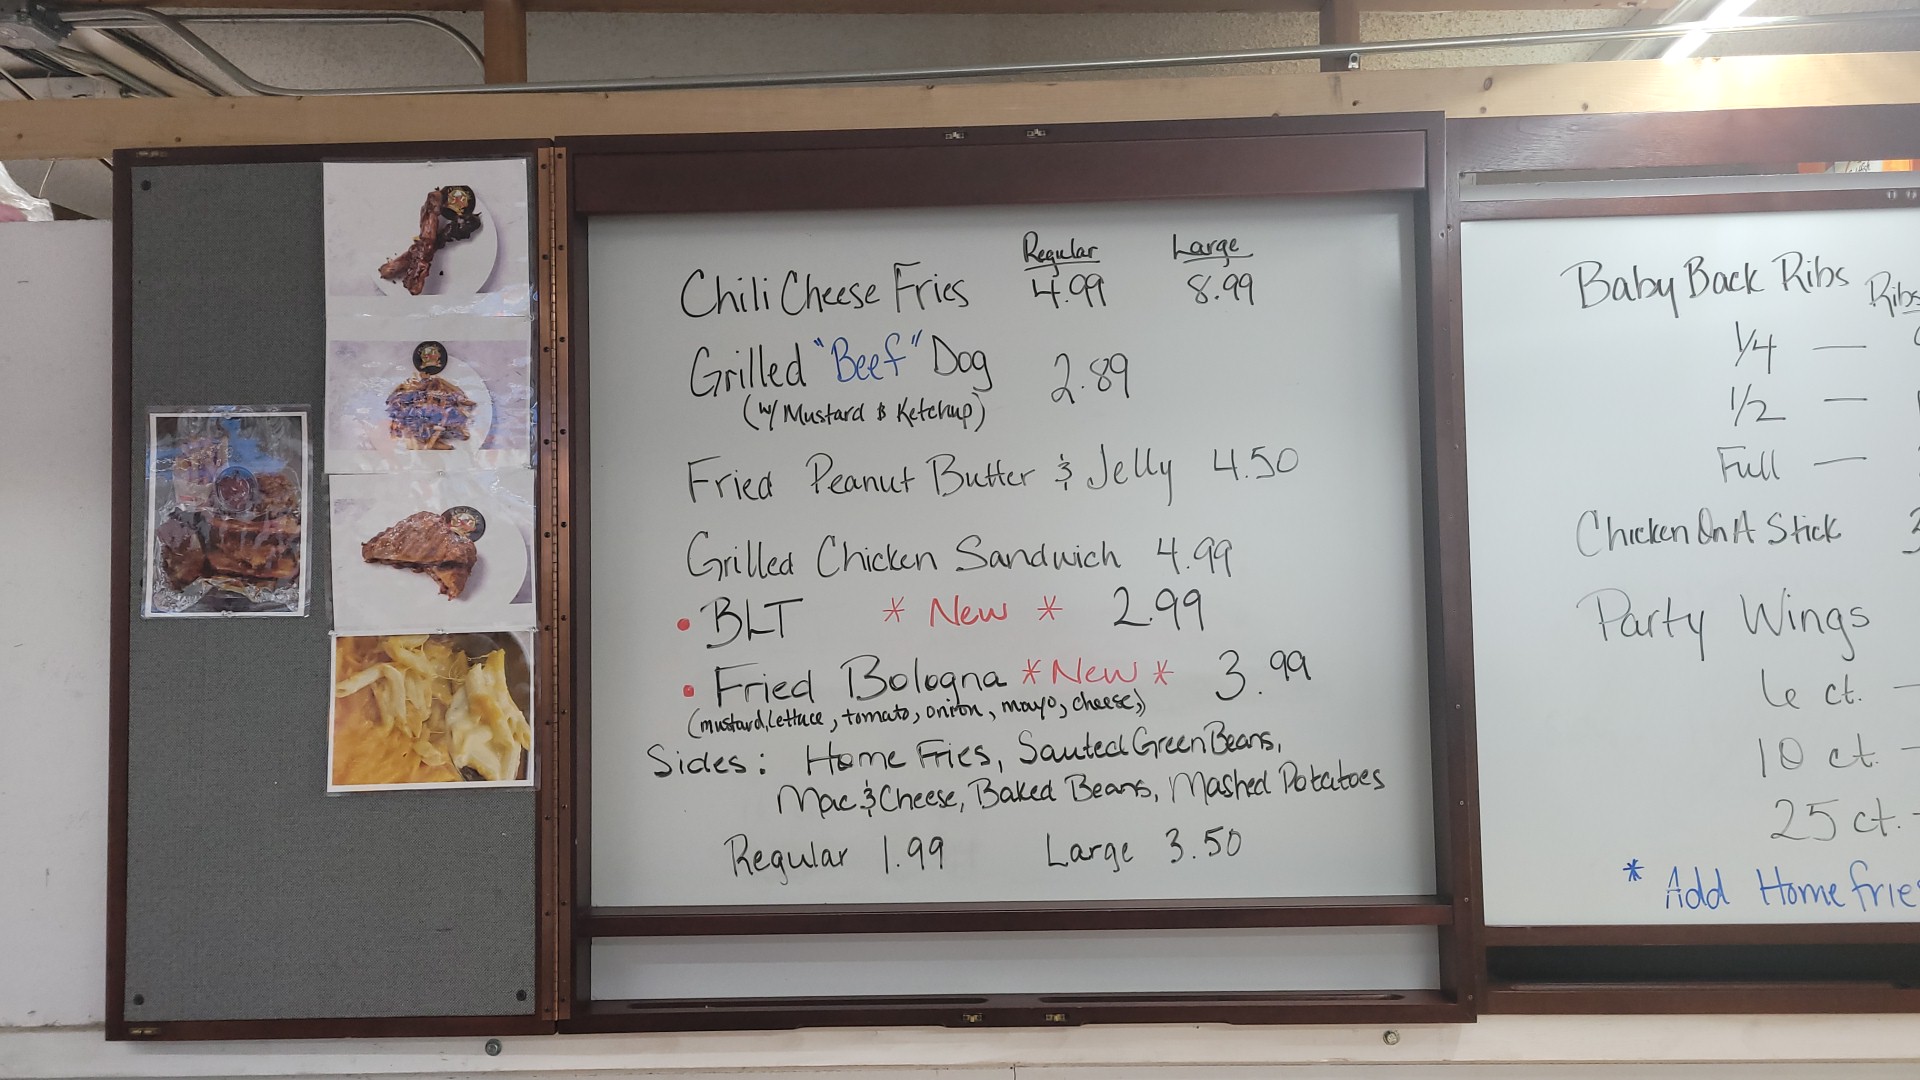 Regular Large
Chili Cheese Fries 4.99 8.99
Grilled "Beef" Dog 2.89
(w/ Mustard & Ketchup)
Fried Peanut Butter & Jelly 4.50
Grilled Chicken Sandwich 4.99
• BLT * New * 2.99
• Fried Bologna * New * 3.99
(mustard, lettuce, tomato, onion, mayo, cheese,)
Sides: Home Fries, Sauted Green Beans,
Mac & Cheese, Baked Beans, Mashed Potatoes
Regular 1.99 Large 3.50
Baby Back Ribs Ribs
1/4 —
1/2 —
Full —
Chicken On A Stick 3
Party Wings
6 ct. —
10 ct. —
25 ct. -
* Add Home frie